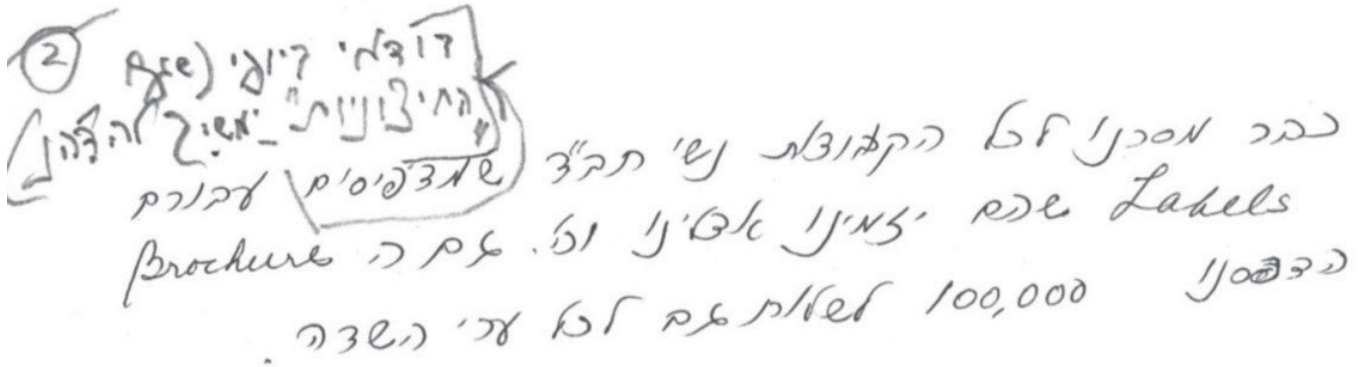 2 (שגם
"החיצוניות"
כבר מסרנו לכל הקבוצות נשי חב"ד שמדפיסים עבורם
Labels שהם יזמינו אצלינו וכו. גם ה Brochure
הדפסנו 100,000 לשלוח גם לכל ערי השדה.